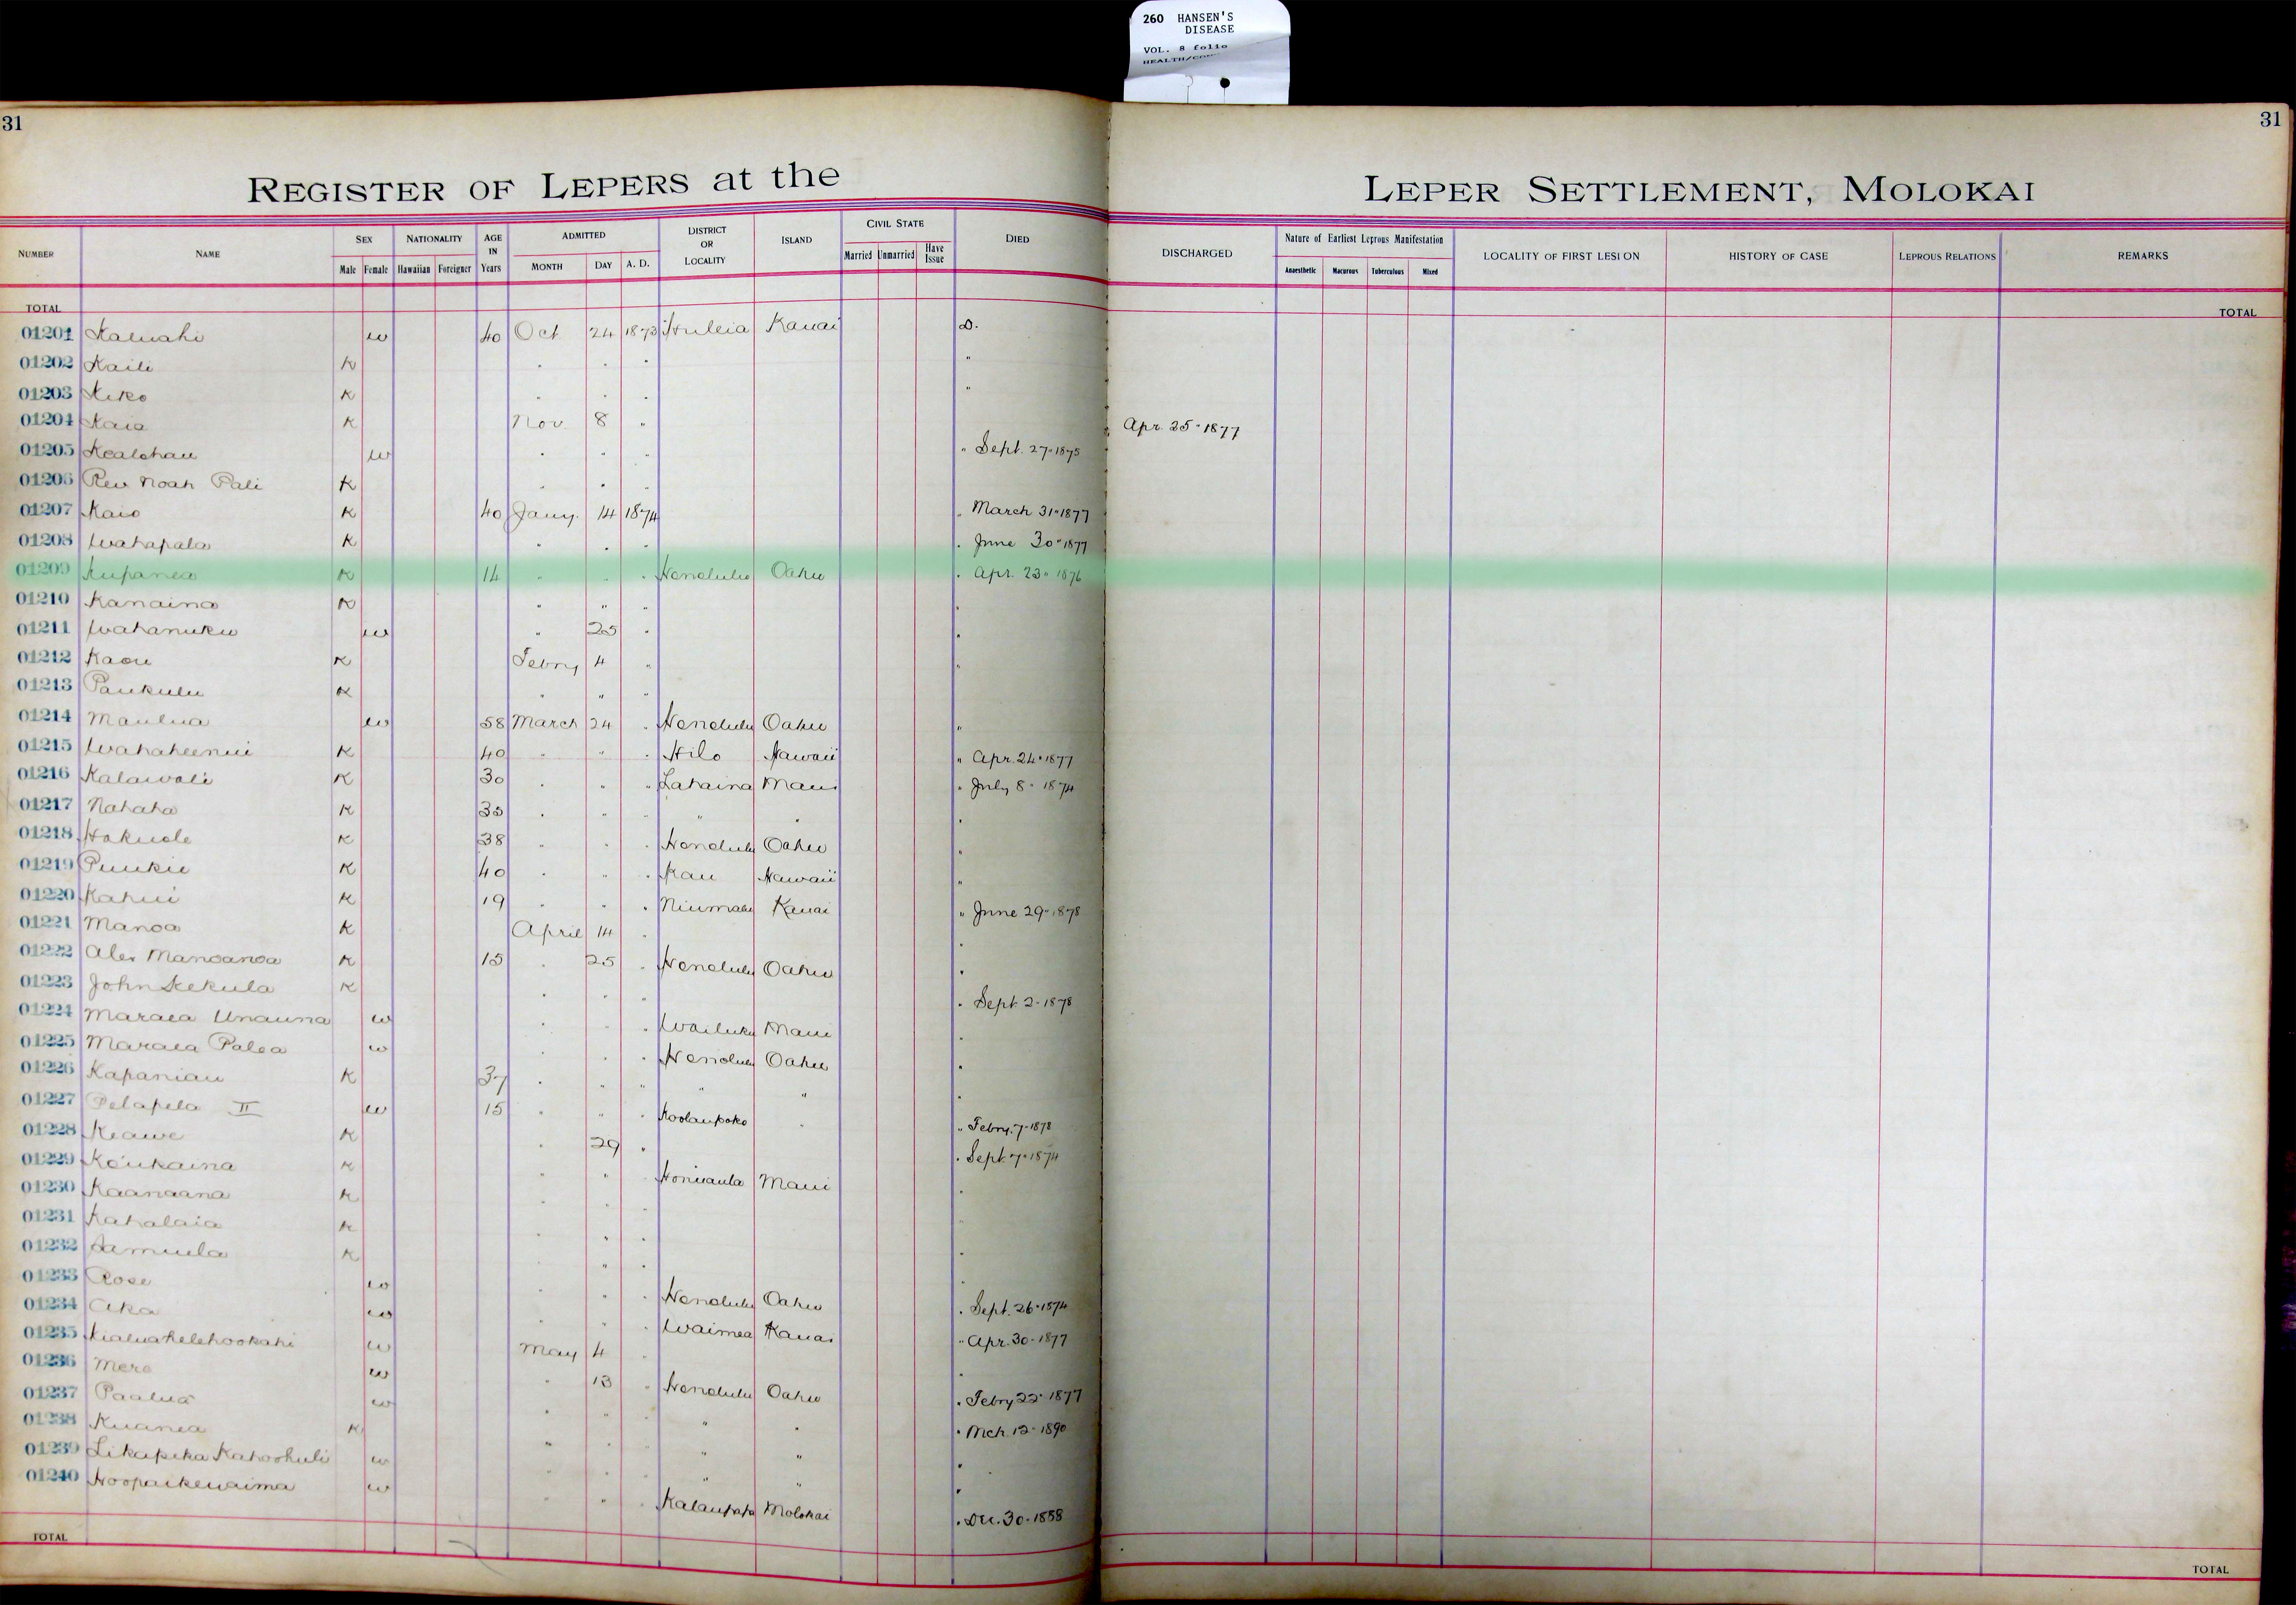 260 HANSEN'S
DISEASE
VOL. 8 folio
31
31
REGISTER OF LEPERS at the LEPER SETTLEMENT, MOLOKAI
NUMBER NAME SEX NATIONALITY AGE IN Years ADMITTED DISTRICT OR LOCALITY ISLAND CIVIL STATE DIED DISCHARGED Nature of Earliest Leprous Manifestation LOCALITY OF FIRST LESION HISTORY OF CASE LEPROUS RELATIONS REMARKS
Male Female Hawaiian Foreigner MONTH DAY A. D. Married Unmarried Have Issue Anaesthetic Macurous Tuberculous Mixed
TOTAL TOTAL
01201 Kaluahi w 40 Oct 24 1873 Huleia Kauai D.
01202 Kaili K " " " "
01203 Keko K " " " "
01204 Kaia K Nov. 8 " " Apr. 25" 1877
01205 Kealohau w " " " " Sept. 27" 1875
01206 Rev Noah Pali K " " "
01207 Kaio K 40 Jany. 14 1874 " March 31" 1877
01208 Wahapala K " " " " June 30" 1877
01209 Kupanea K 14 " " " Honolulu Oahu " Apr. 23" 1876
01210 Kanaina K " " " "
01211 Wahanuku w " 25 " "
01212 Kaou K Febry 4 " "
01213 Paukulu K " " "
01214 Maulua w 58 March 24 " Honolulu Oahu "
01215 Wahaheenui K 40 " " " Hilo Hawaii " Apr. 24" 1877
01216 Kalawali K 30 " " " Lahaina Maui " July 8" 1874
01217 Nahaha K 35 " " " " " "
01218 Hokuole K 38 " " " Honolulu Oahu "
01219 Puukii K 40 " " " Kau Hawaii "
01220 Kahui K 19 " " " Niumalu Kauai " June 29" 1878
01221 Manoa K April 14 " "
01222 Alex Manoanoa K 15 " 25 " Honolulu Oahu "
01223 John Kekula K " " " " Sept. 2" 1878
01224 Maraea Unauna w " " " Wailuku Maui "
01225 Maraea Palea w " " " Honolulu Oahu "
01226 Kapaniau K 37 " " " " " "
01227 Pelapela II w 15 " " " Koolaupoko " " Febry. 7" 1878
01228 Keawe K " 29 " " Sept. 7" 1874
01229 Keukaina K " " " Honuaula Maui "
01230 Kaanaana K " "
01231 Kahalaia K " " "
01232 Samuela K " " "
01233 Rose w " " " Honolulu Oahu " Sept. 26" 1874
01234 Aka w " " " Waimea Kauai " Apr. 30" 1877
01235 Kialuahelehookahi w May 4 " "
01236 Mere w " 13 " Honolulu Oahu " Febry 22" 1877
01237 Paalua w " " " " " " Mch. 12" 1890
01238 Kuanea K " " " " " "
01239 Likapeka Kahoohuli w " " " " " "
01240 Hoopaikewaima w " " " Kalaupapa Molokai " Dec. 30" 1888
TOTAL TOTAL